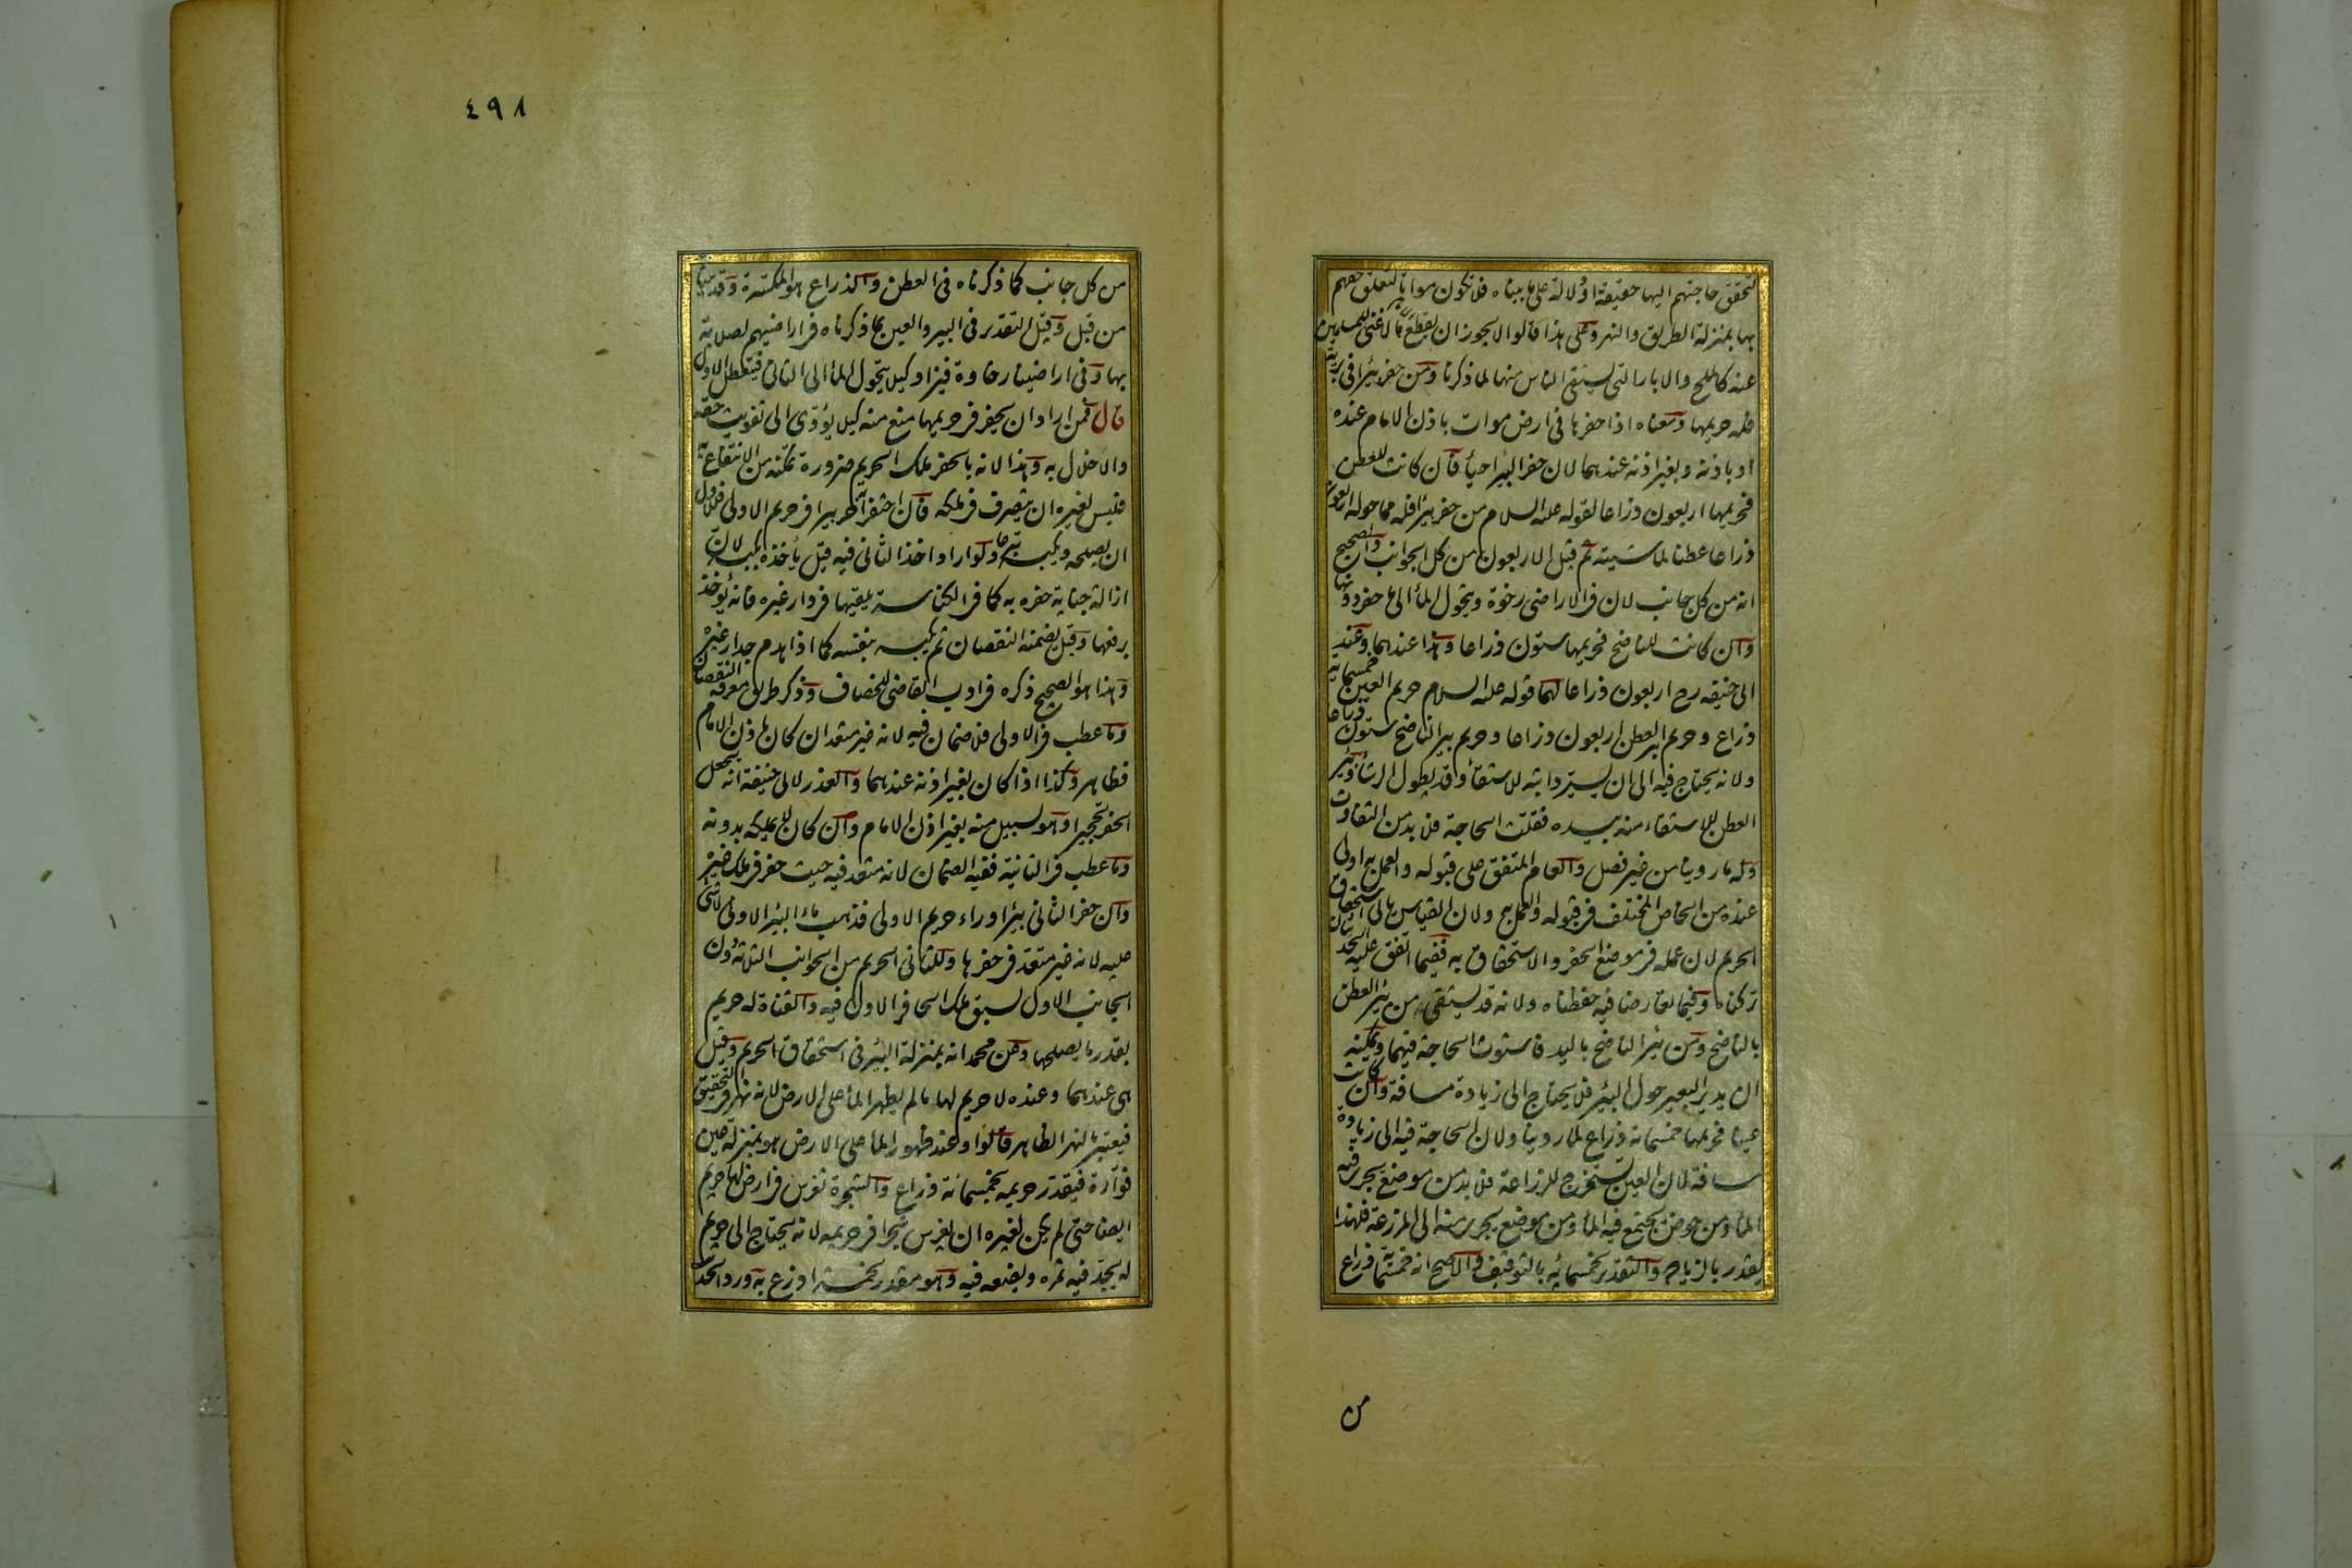 لتحقق حاجتهم اليها حقيقة او دلالة على ما بيناه فلا تكون مواتا لتعلق حقهم
بها بمنزلة الطريق والنهر وعلى هذا قالوا لا يجوز ان يقطع ما لا غنى للمسلمين
عنه كالملح والابار التي يستقى الناس منها لما ذكرنا ومن حفر بئرا في برية
فله حريمها ومعناه اذا حفرها في ارض موات باذن الامام عنده
او باذنه وبغير اذنه عندهما لان حفر البئر احياء فان كانت للعطن
فحريمها اربعون ذراعا لقوله عليه السلام من حفر بيرا فله مما حولها اربعون
ذراعا عطنا لماشيته ثم قيل الاربعون من كل الجوانب والصحيح
انه من كل جانب لان في الاراضي رخوة ويتحول الماء الى ما حفر دونها
وان كانت للناضح فحريمها ستون ذراعا وهذا عندهما وعند
ابي حنيفه رح اربعون ذراعا لهما قوله عليه السلام حريم العين خمسمائة
ذراع وحريم بير العطن اربعون ذراعا وحريم بير الناضح ستون ذراعا
ولانه يحتاج فيه الى ان يسير دابته للاستقاء وقد يطول الرشاء وبئر
العطن للاستقاء منه بيده فقلت الحاجة فلا بد من التفاوت
وله ما روينا من غير فصل والعام المتفق على قبوله والعمل به اولى
عنده من الخاص المختلف في قبوله والعمل به ولان القياس يابى استحقاق
الحريم لان عمله في موضع الحفر والاستحقاق به ففيما اتفق عليه الحديثان
تركناه وفيما تعارضا فيه حفظناه ولانه قد يستقى من بئر العطن
بالناضح ومن بئر الناضح باليد فاستوت الحاجة فيهما ويمكنه
ان يدير البعير حول البئر فلا يحتاج الى زيادة مسافة وان كانت
عينا فحريمها خمسمائة ذراع لما روينا ولان الحاجة فيه الى زيادة
مسافة لان العين تستخرج للزراعة فلا بد من موضع يجري فيه
الماء ومن حوض يجتمع فيه الماء ومن موضع يجري منه الى المزرعة فلهذا
يقدر بالزيادة والتقدير بخمسمائة بالتوقيف والاصح انه خمسمائة ذراع
من
٤٩٨
من كل جانب كما ذكرناه في العطن والذراع هو المكسرة وقد بينا
من قبل وقيل التقدير في البير والعين بما ذكرناه في اراضيهم لصلابة
بها وفي اراضينا رخاوة فيزاد كيلا يتحول الماء الى الثاني فيتعطل الاول
قال فمن اراد ان يحفر في حريمها منع منه كيلا يؤدى الى تفويت حقه
والاخلال به وهذا لانه بالحفر ملك الحريم ضرورة تمكنه من الانتفاع به
فليس لغيره ان يتصرف في ملكه فان احتفر اخر بيرا في حريم الاولى فللاول
ان يصلحه ويكبسه تبرعا ولو اراد اخذ الثاني فيه قيل يأخذه بكبسه لان
ازالة جناية حفره به كما في الكناسة يلقيها في دار غيره فانه يؤخذ
برفعها وقيل يضمنه النقصان ثم يكبسه بنفسه كما اذا هدم جدار غيره
وهذا هو الصحيح ذكره في ادب القاضي للخصاف وذكر طريق معرفة النقصان
وما عطب في الاولى فلا ضمان فيه لانه غير متعد ان كان باذن الامام
فظاهر وكذا اذا كان بغير اذنه عندهما والعذر لابي حنيفة انه يجعل
الحفر تحجيرا وهو بسبيل منه بغير اذن الامام وان كان لا يملكه بدونه
وما عطب في الثانية ففيه الضمان لانه متعد فيه حيث حفر في ملك غيره
وان حفر الثاني بئرا وراء حريم الاولى فذهب ماء البئر الاولى لا شئ
عليه لانه غير متعد في حفرها وللثاني الحريم من الجوانب الثلثة دون
الجانب الاول لسبق ملك الحافر الاول فيه والقناة له حريم
بقدر ما يصلحها وعن محمد انه بمنزلة البئر في استحقاق الحريم وقيل
هى عندهما وعنده لا حريم لها ما لم يظهر الماء على الارض لانه نهر في التحقيق
فيعتبر بالنهر الظاهر قالوا وعند ظهور الماء على الارض هو بمنزلة عين
فوارة فيقدر حريمه بخمسمائة ذراع والشجرة تغرس في ارض لها حريم
ايضا حتى لم يكن لغيره ان يغرس شجرا في حريمه لانه يحتاج الى حريم
له يجد فيه ثمره ويضعه فيه وهو مقدر بخمسة اذرع به ورد الحديث